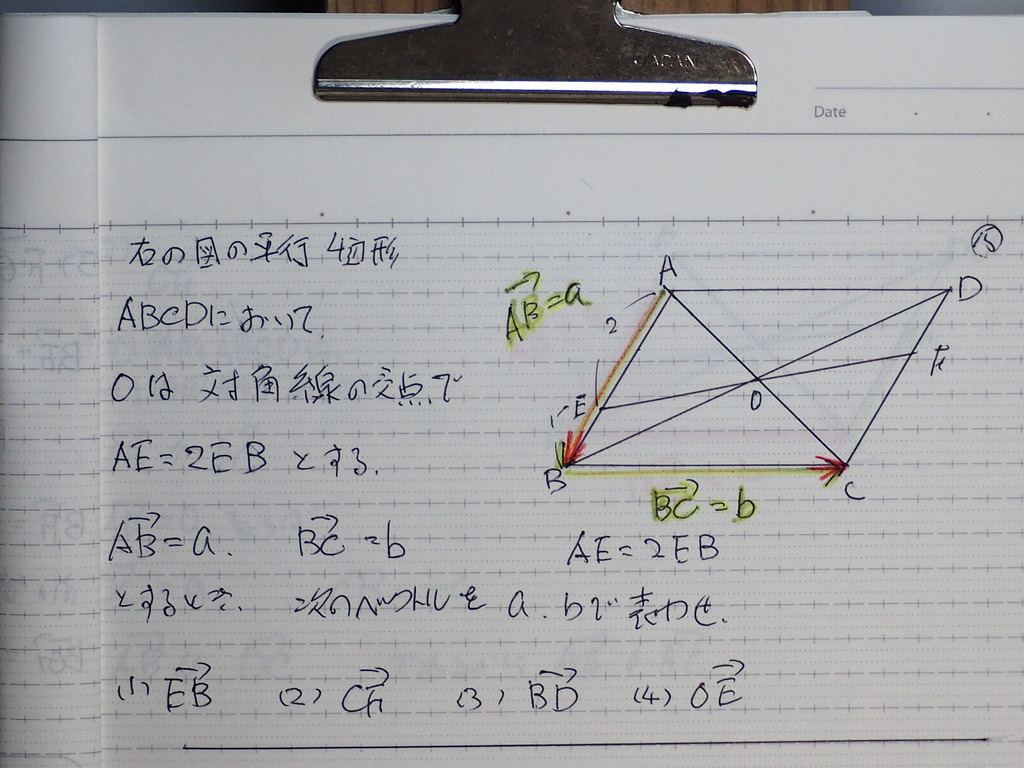 JAPAN
Date
⑮
右の図の平行4辺形
ABCDにおいて.
Oは対角線の交点で
AE=2EBとする.
AB=a. BC=b
とするとき. 次のベクトルを a. bで表わせ.
(1) EB (2) CF (3) BD (4) OE
AB=a
A
D
2
F
1 E
O
B
C
BC=b
AE=2EB